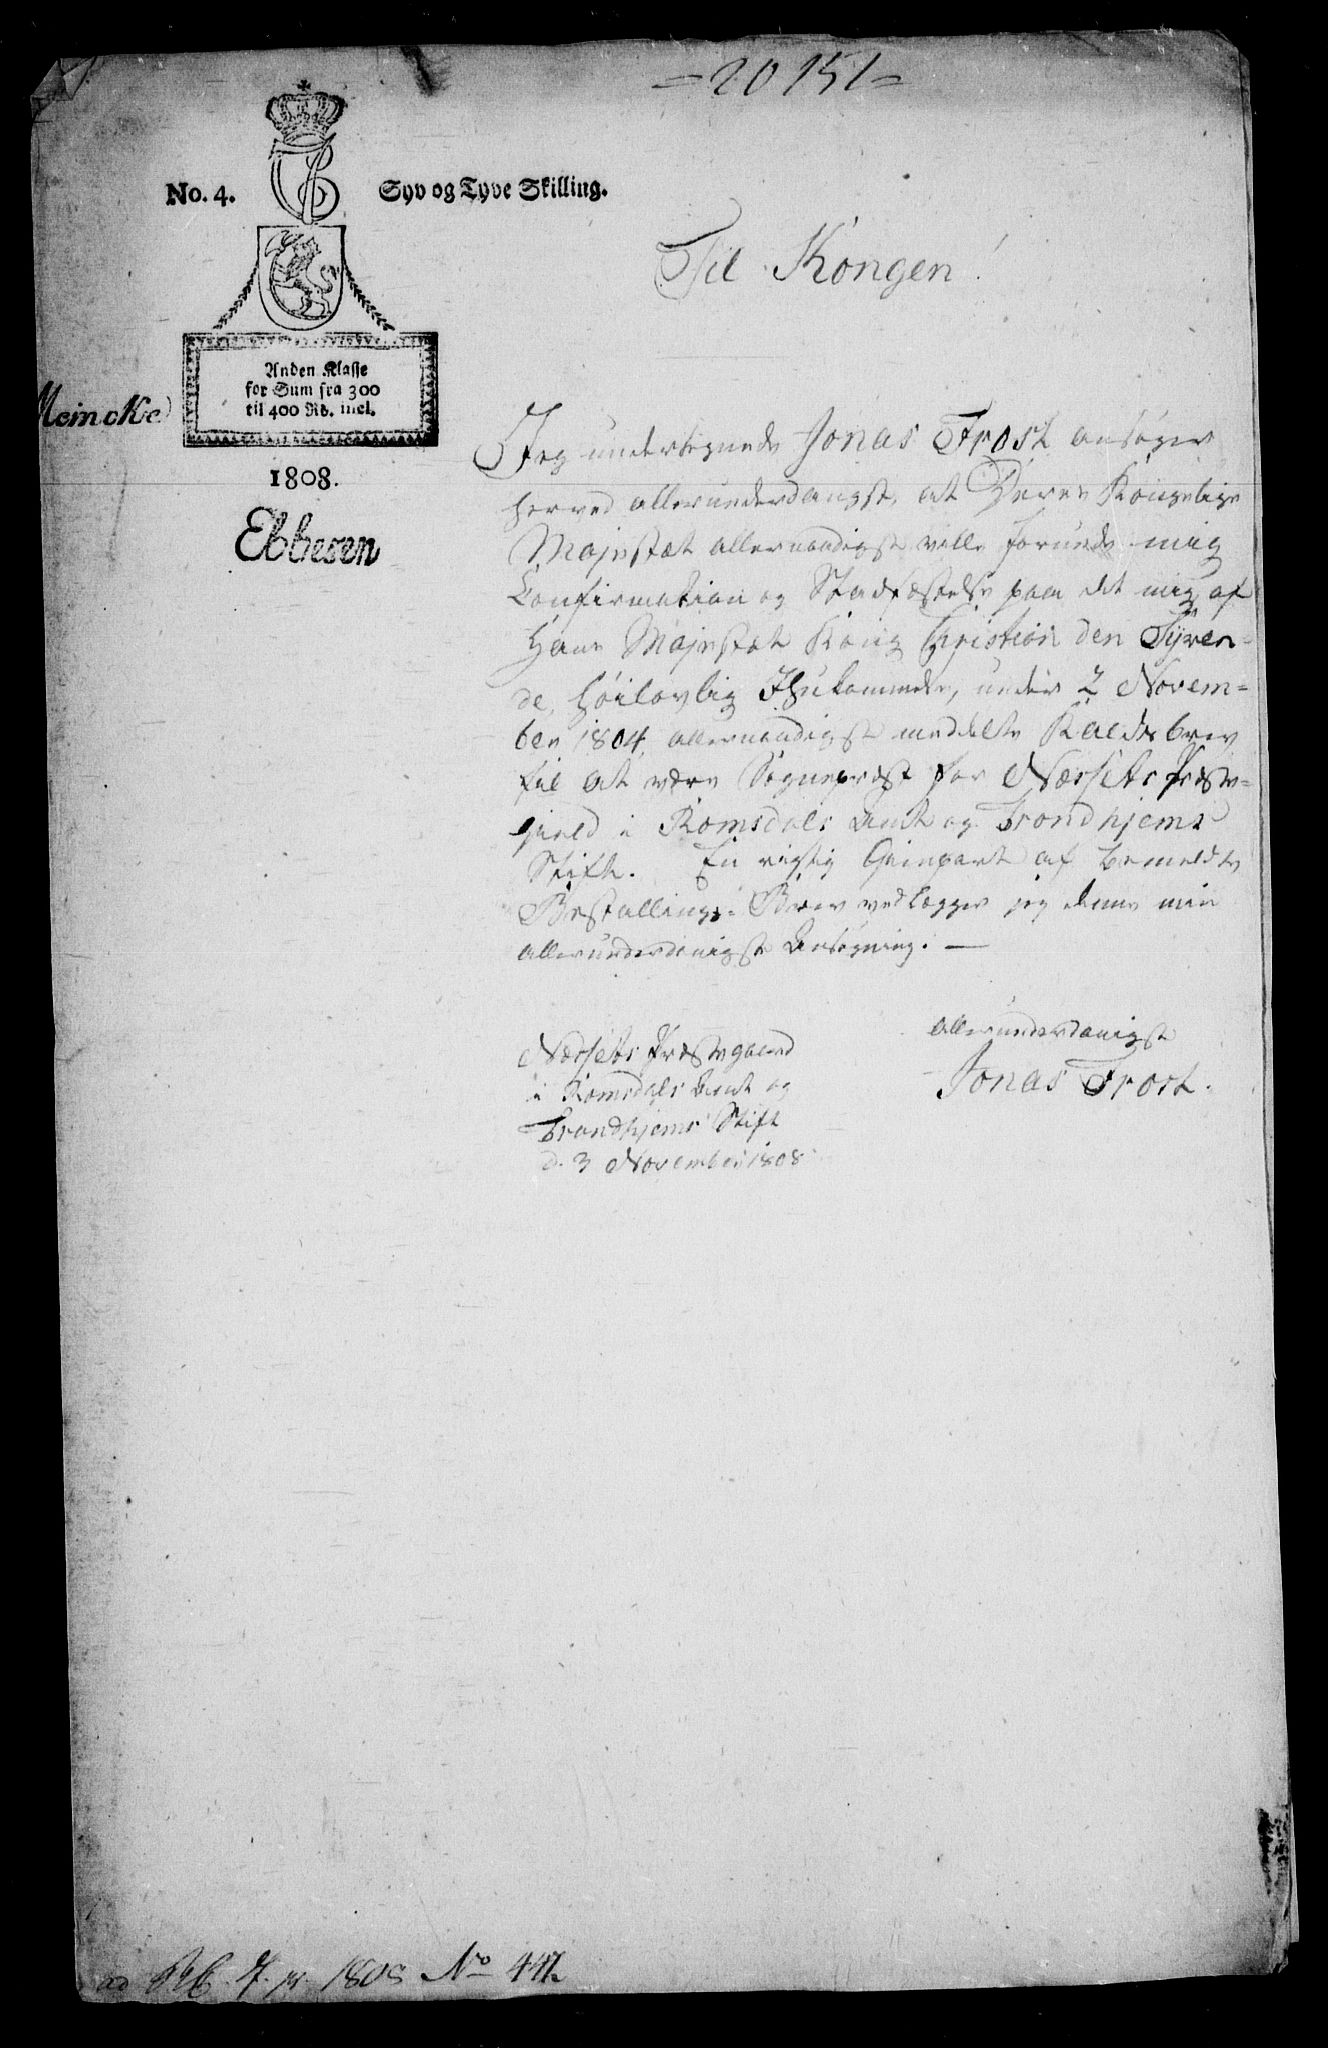 =20151=
No. 4.
Syv og Tyve Skilling.
Anden Klasse
for Sum fra 300
til 400 Rd. incl.
Meincke
1808.
Ebbesen
Til Kongen!
Jeg undertegnede Jonas Frost ansøger
herved allerunderdanigst, at Deres Kongelige
Majestæt allernaadigst ville forunde mig
Confirmation og Stadfæstelse paa det mig af
Hans Majestæt Kong Christian den Syven-
de, høilovlig Ihukommelse, under 2 Novem-
ber 1804 allernaadigst meddelte Kaldsbrev
til at være Sognepræst for Næssets Præste-
gield i Romsdals Amt og Trondhjems
Stift. En rigtig Gienpart af bemeldte
Bestallings-Brev vedlægger jeg denne min
allerunderdanigste Ansøgning. —
Næssets Præstegaard
i Romsdals Amt og
Trondhjems Stift
d. 3 November 1808
allerunderdanigst
Jonas Frost.
ad 7. 1808 No 447.